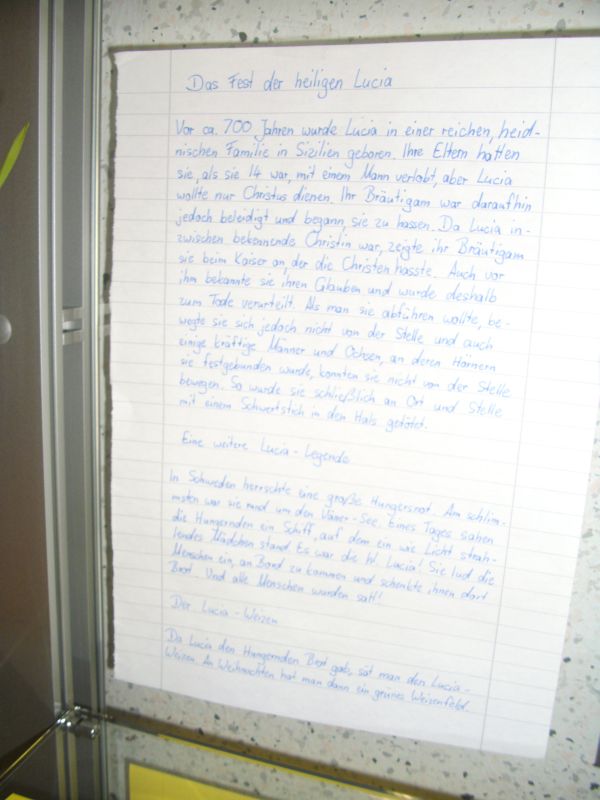 Das Fest der heiligen Lucia
Vor ca. 700 Jahren wurde Lucia in einer reichen, heid-
nischen Familie in Sizilien geboren. Ihre Eltern hatten
sie, als sie 14 war, mit einem Mann verlobt, aber Lucia
wollte nur Christus dienen. Ihr Bräutigam war daraufhin
jedoch beleidigt und begann, sie zu hassen. Da Lucia in-
zwischen bekennende Christin war, zeigte ihr Bräutigam
sie beim Kaiser an, der die Christen hasste. Auch vor
ihm bekannte sie ihren Glauben und wurde deshalb
zum Tode verurteilt. Als man sie abführen wollte, be-
wegte sie sich jedoch nicht von der Stelle und auch
einige kräftige Männer und Ochsen, an deren Hörnern
sie festgebunden wurde, konnten sie nicht von der Stelle
bewegen. So wurde sie schließlich an Ort und Stelle
mit einem Schwertstich in den Hals getötet.
Eine weitere Lucia-Legende
In Schweden herrschte eine große Hungersnot. Am schlim-
msten war sie rund um den Väner-See. Eines Tages sahen
die Hungernden ein Schiff, auf dem ein wie Licht strah-
lendes Mädchen stand. Es war die hl. Lucia! Sie lud die
Menschen ein, an Bord zu kommen und schenkte ihnen dort
Brot. Und alle Menschen wurden satt!
Der Lucia-Weizen
Da Lucia den Hungernden Brot gab, sät man den Lucia-
Weizen. An Weihnachten hat man dann ein grünes Weizenfeld.